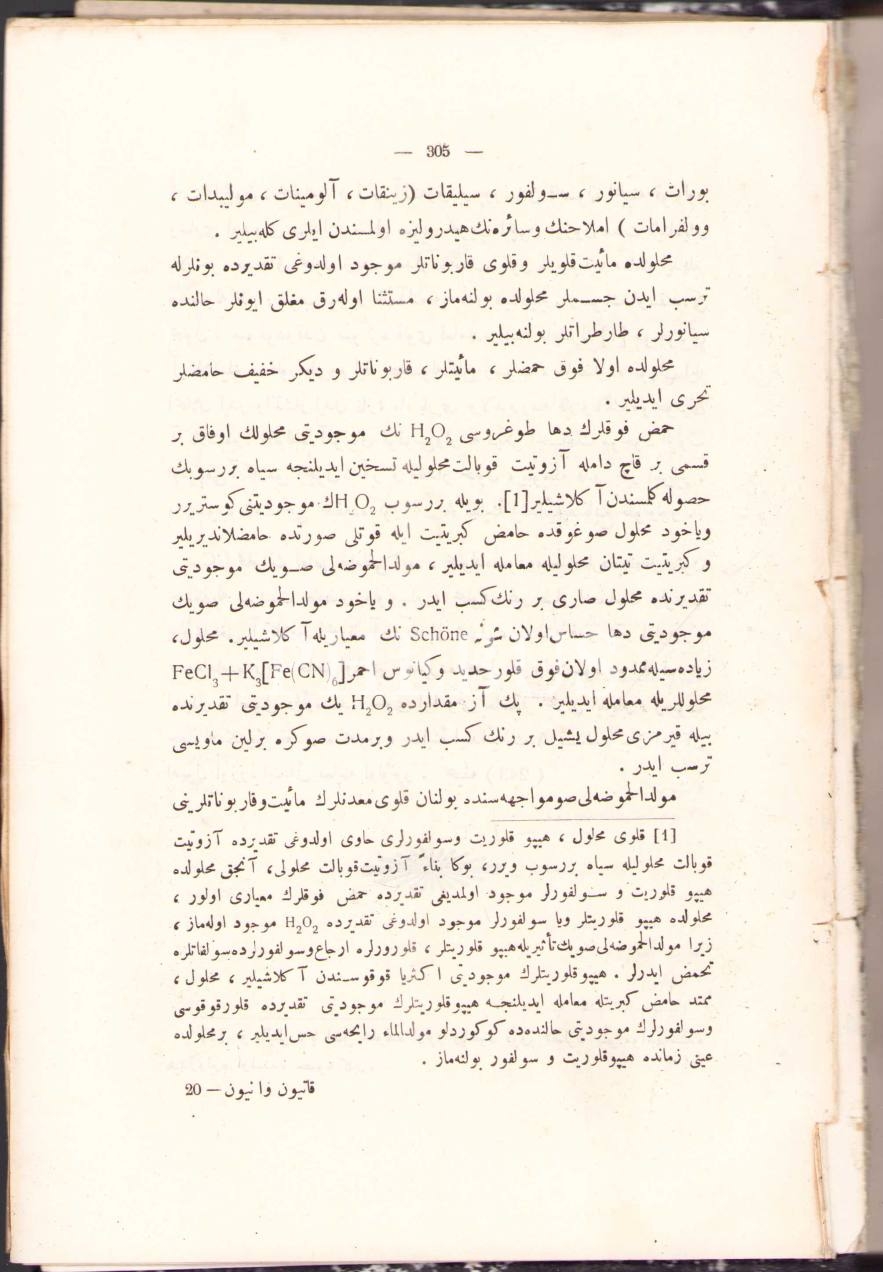 — 305 —
بورات ، سیانور ، سولفور ، سیلیقات (زینقات ، آلومینات ، مولیبدات ،
وولفرامات ) املاحنك وسائره‌نك هیدرولیزه اولمسندن ایلری كله‌بیلیر .
محلولده مائیت قلویلر وقلوی قاربوناتلر موجود اولدوغی تقدیرده بونلرله
ترسب ایدن جسملر محلولده بولنه‌ماز ، مستثنا اوله‌رق مغلق ایونلر حالنده
سیانورلر ، طارطراتلر بولنه‌بیلیر .
محلولده اولا فوق حمضلر ، مائیتلر ، قاربوناتلر و دیكر خفیف حامضلر
تحری ایدیلیر .
حمض فوقلرك دها طوغروسی H₂O₂ نك موجودیتی محلولك اوفاق بر
قسمی بر قاچ دامله آزوتیت قوبالت محلولیله تسخین ایدیلنجه سیاه بررسوبك
حصوله كلمسندن آكلاشیلیر[1]. بویله بررسوب H₂O₂ك موجودیتنی كوستریرر
ویاخود محلول صوغوقده حامض كبریتیت ایله قوتلی صورتده حامضلاندیریلیر
و كبریتیت تیتان محلولیله معامله ایدیلیر ، مولدالحموضه‌لی صویك موجودیتی
تقدیرنده محلول صاری بر رنك كسب ایدر . و یاخود مولدالحموضه‌لی صویك
موجودیتی دها حساس اولان شونه Schöne نك معیاریله آكلاشیلیر. محلول،
زیاده‌سیله ممدود اولان فوق قلور حدید وكیانوس احمر FeCl₃+K₃[Fe(CN)₆]
محلوللریله معامله ایدیلیر . پك آز مقدارده H₂O₂ یك موجودیتی تقدیرنده
بیله قیرمزی محلول یشیل بر رنك كسب ایدر وبرمدت صوكره برلین ماویسی
ترسب ایدر .
مولدالحموضه‌لی صومواجهه‌سنده بولنان قلوی معدنلرك مائیت وقاربوناتلرینی
[1] قلوی محلول ، هیپو قلوریت وسولفورلری حاوی اولدوغی تقدیرده آزوتیت
قوبالت محلولیله سیاه بررسوب ویرر، بوكا بناءً آزوتیت قوبالت محلولی، آنجق محلولده
هیپو قلوریت و سولفورلر موجود اولمدیغی تقدیرده حمض فوقلرك معیاری اولور ،
محلولده هیپو قلوریتلر ویا سولفورلر موجود اولدوغی تقدیرده H₂O₂ موجود اوله‌ماز ،
زیرا مولدالحموضه‌لی صویك تأثیریله هیپو قلوریتلر ، قلورورلره ارجاع وسولفورلرده سولفاتلره
تحمض ایدرلر . هیپوقلوریتلرك موجودیتی اكثریا قوقوسندن آكلاشیلیر ، محلول ،
ممتد حامض كبریتله معامله ایدیلنجه هیپوقلوریتلرك موجودیتی تقدیرده قلورقوقوسی
وسولفورلرك موجودیتی حالنده‌ده كوكوردلو مولدالماء رایحه‌سی حس ایدیلیر ، برمحلولده
عینی زمانده هیپوقلوریت و سولفور بولنه‌ماز .
قاتیون وانیون — 20